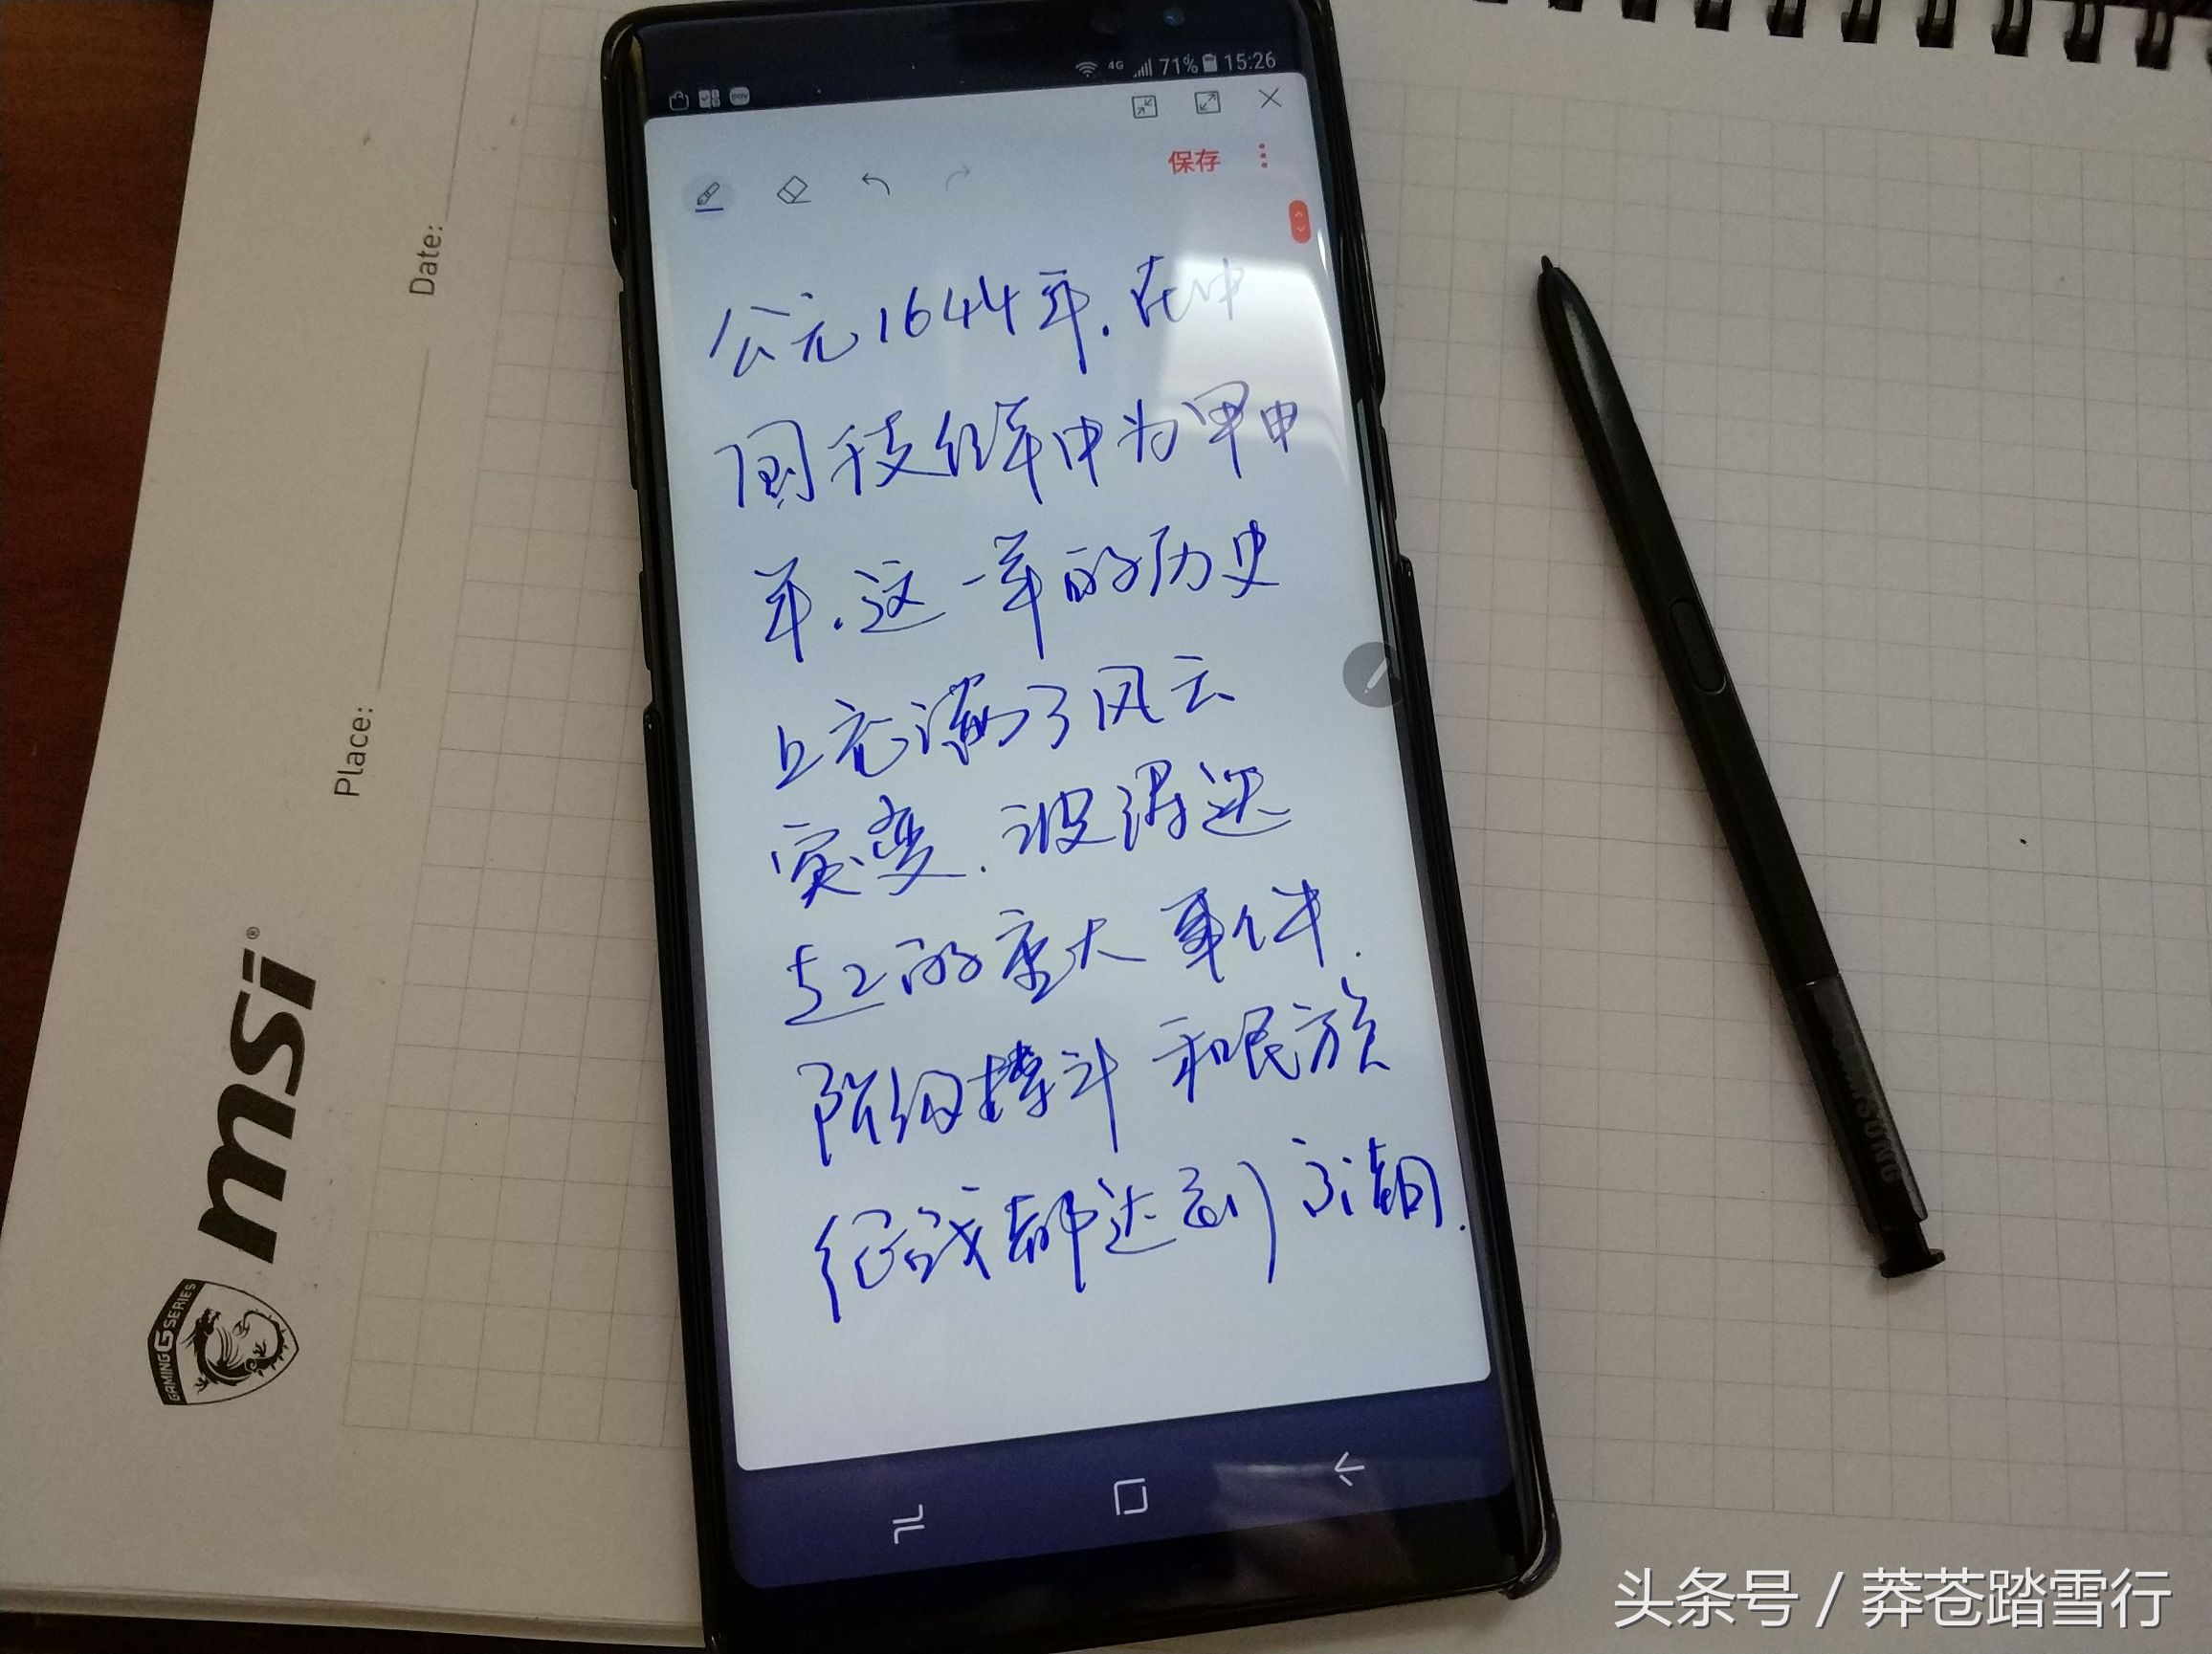 71% 15:26
保存
公元1644年.在中
国干支纪年中为甲申
年.这一年的历史
上充满了风云
突变.波谲迭
起的重大事件.
阶级搏斗和民族
征战都达到高潮.
Date:
Place:
msi®
GAMING G SERIES
SAMSUNG
头条号 / 莽苍踏雪行